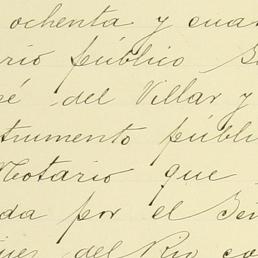 ochenta y cua
rio público
sé del Villar y
trumento públi
Notario que
da por el Señ
del Rio co